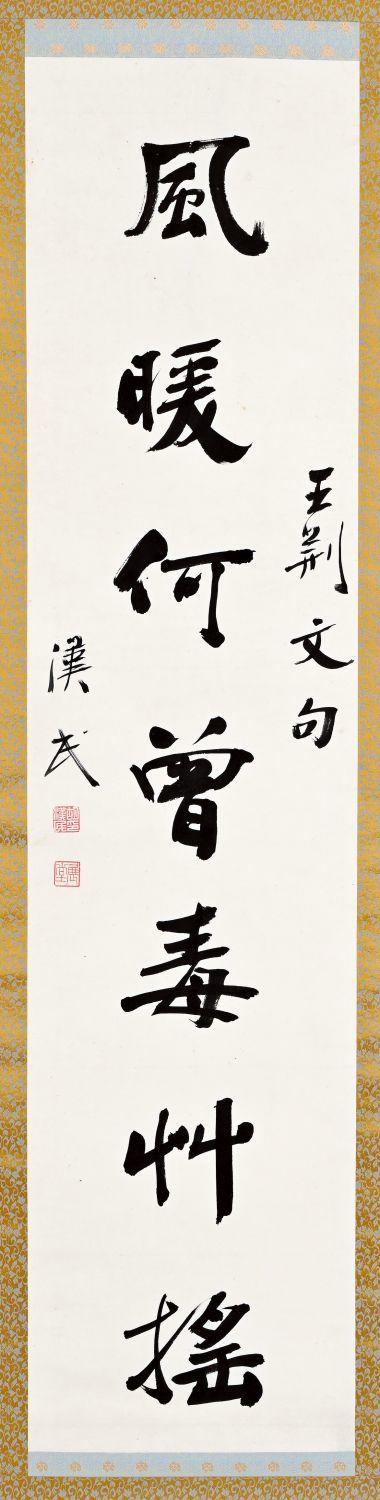 王荊文句
風暖何曾毒艸搖
漢民
展堂